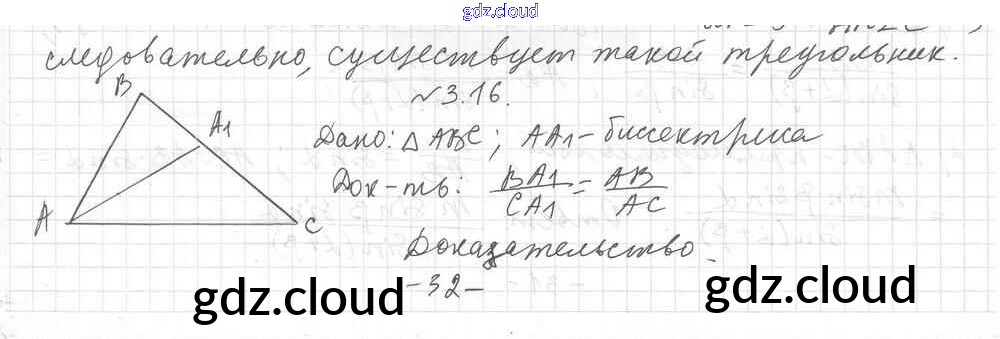 gdz.cloud
следовательно, существует такой треугольник.
№3.16.
B
A1
A
C
Дано: △ABC; AA1 - биссектриса
Док-ть: BA1/CA1 = AB/AC
Доказательство.
-32-
gdz.cloud
gdz.cloud